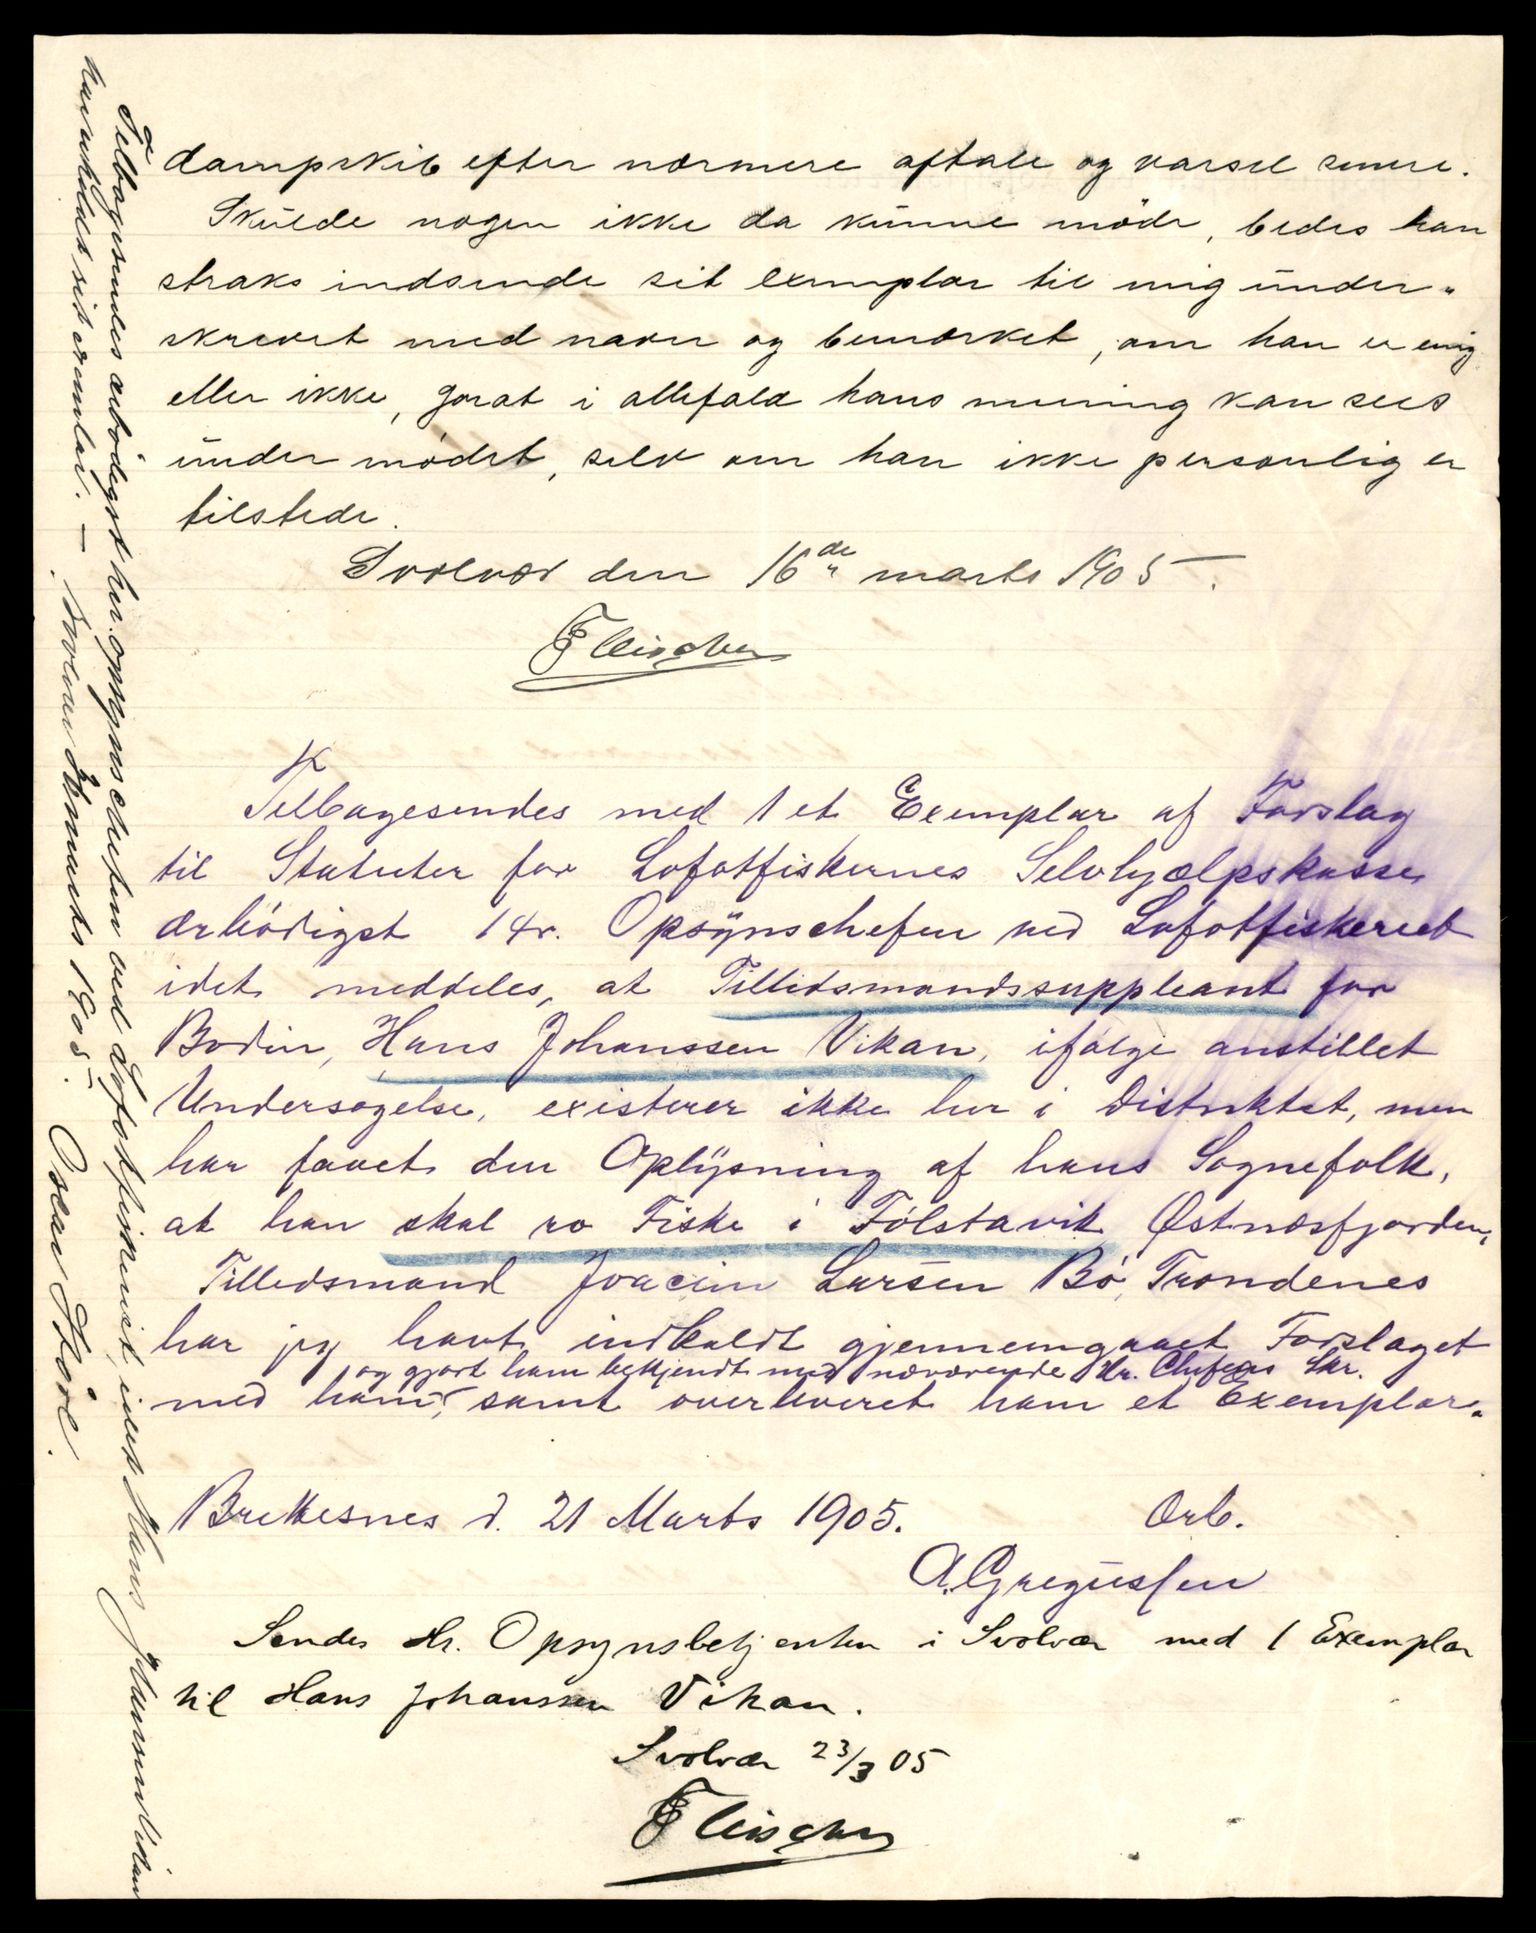 dampskib efter nærmere aftale og varsel senere.
Skulde nogen ikke da kunne møde, bedes han
straks indsende sit exemplar til mig under-
skrevet med navn og bemærket, om han er enig
eller ikke, forat i allefald hans mening kan sees
under mødet, selv om han ikke personlig er
tilstede.
Svolvær den 16de marts 1905.
Fleischer
Tilbagesendes med 1 et Exemplar af Forslag
til Statuter for Lofotfiskernes Selvhjælpskasse,
ærbödigst Hr. Opsÿnschefen ved Lofotfiskeriet
idet meddeles, at Tillidsmandssuppleant for
Bodin, Hans Johanssen Vikan, ifølge anstillet
Undersøgelse, existerer ikke her i Distriktet, men
har faaet den Oplÿsning af hans Sognefolk,
at han skal ro Fiske i Fölstavik Østnæsfjorden,
Tillidsmand Joacim Larsen Bö, Trondenes
har jeg havt indkaldt gjennemgaaet Forslaget
og gjort ham bekjendt med nærværende Hr. Chefens Skr.
med ham, samt overleveret ham et Exemplar.
Brettesnes d. 21 Marts 1905.
Ærb.
A. Gregussen
Sendes Hr. Opsynsbetjenten i Svolvær med 1 Exemplar
til Hans Johanssen Vikan.
Svolvær 23/3 05
Fleischer
Tilbagesendes ærbödigst hr. opsynschefen ved Lofotfiskeriet, idet Hans Johansen Vikan
har sit exemlar. —
Svolvær marts 1905.
Oscar